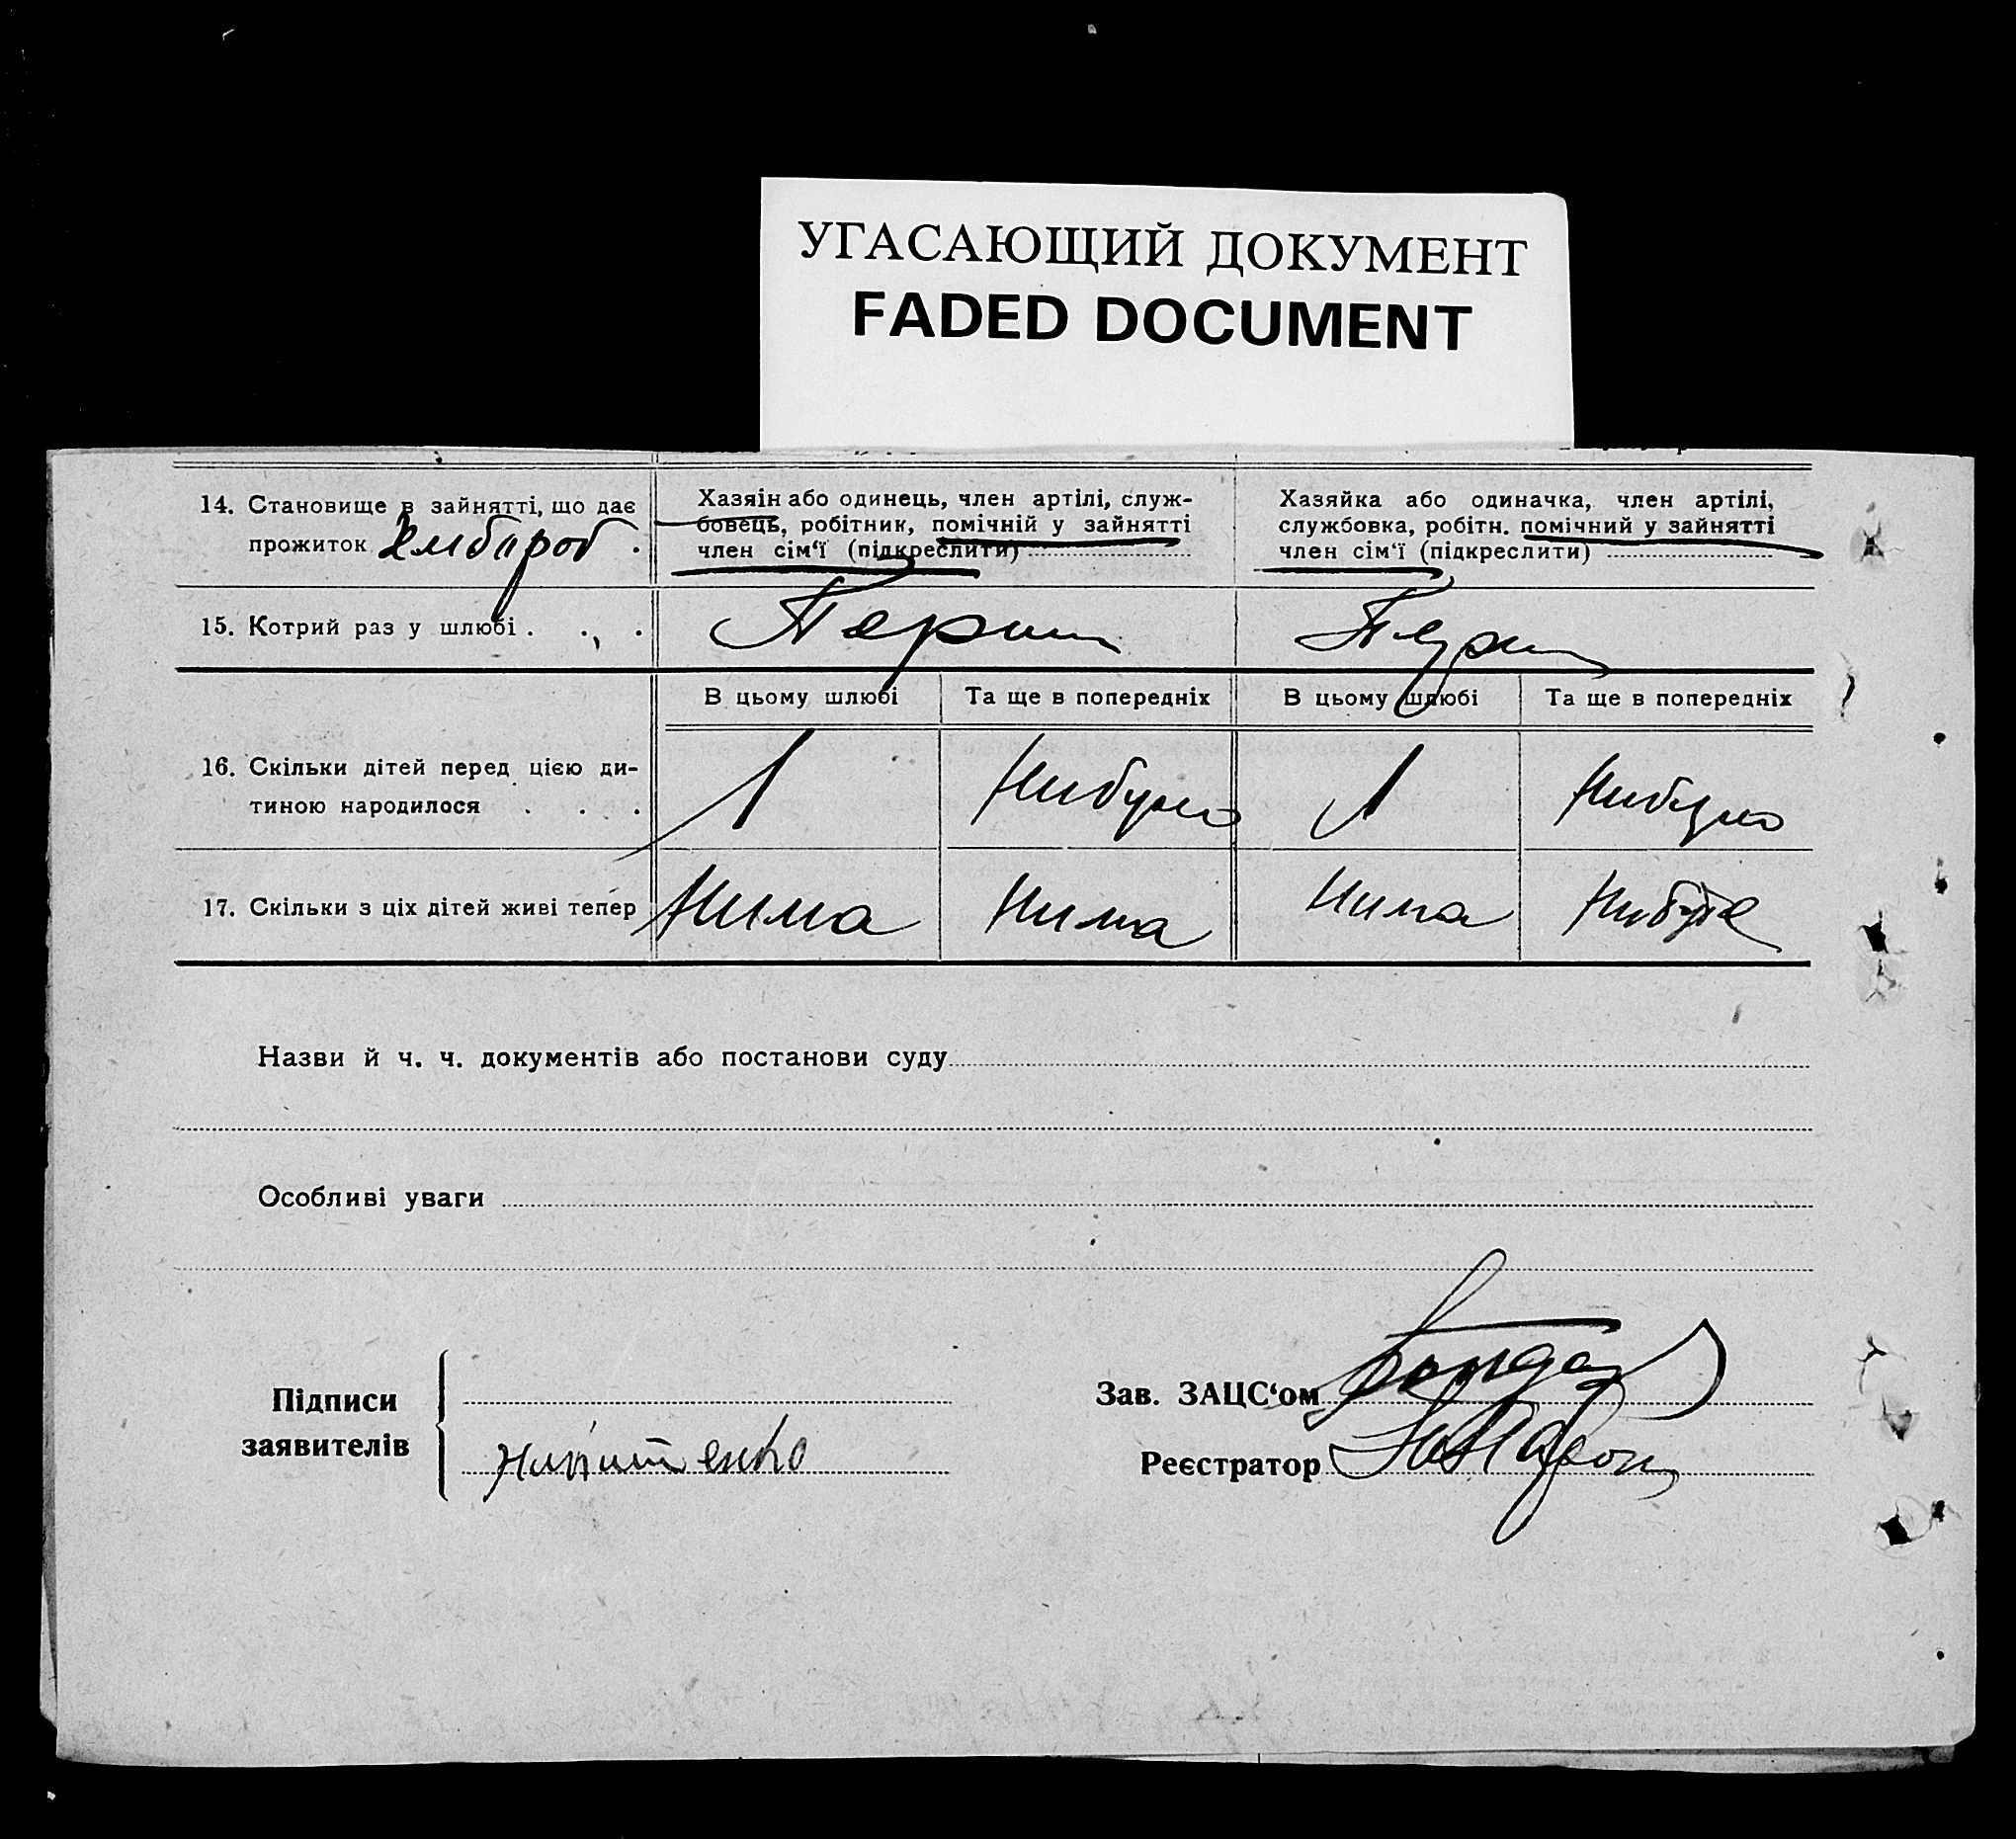 УГАСАЮЩИЙ ДОКУМЕНТ
FADED DOCUMENT
14. Становище в зайнятті, що дає
прожиток Хлібороб .
Хазяїн або одинець, член артілі, служ-
бовець, робітник, помічній у зайнятті
член сім‘ї (підкреслити)
Хазяйка або одиначка, член артілі,
службовка, робітн. помічний у зайнятті
член сім‘ї (підкреслити)
15. Котрий раз у шлюбі . . .
Перши
Перш
В цьому шлюбі Та ще в попередніх В цьому шлюбі Та ще в попередніх
16. Скільки дітей перед цією ди-
тиною народилося . . .
1 Нибуло 1 Нибуло
17. Скільки з ціх дітей живі тепер
Нима Нима Нима
Назви й ч. ч. документів або постанови суду
Особливі уваги
Підписи
заявителів
Никитенко
Зав. ЗАЦС‘ом Бондар
Реєстратор